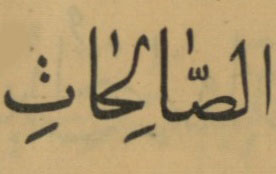 الصَّالِحَاتِ